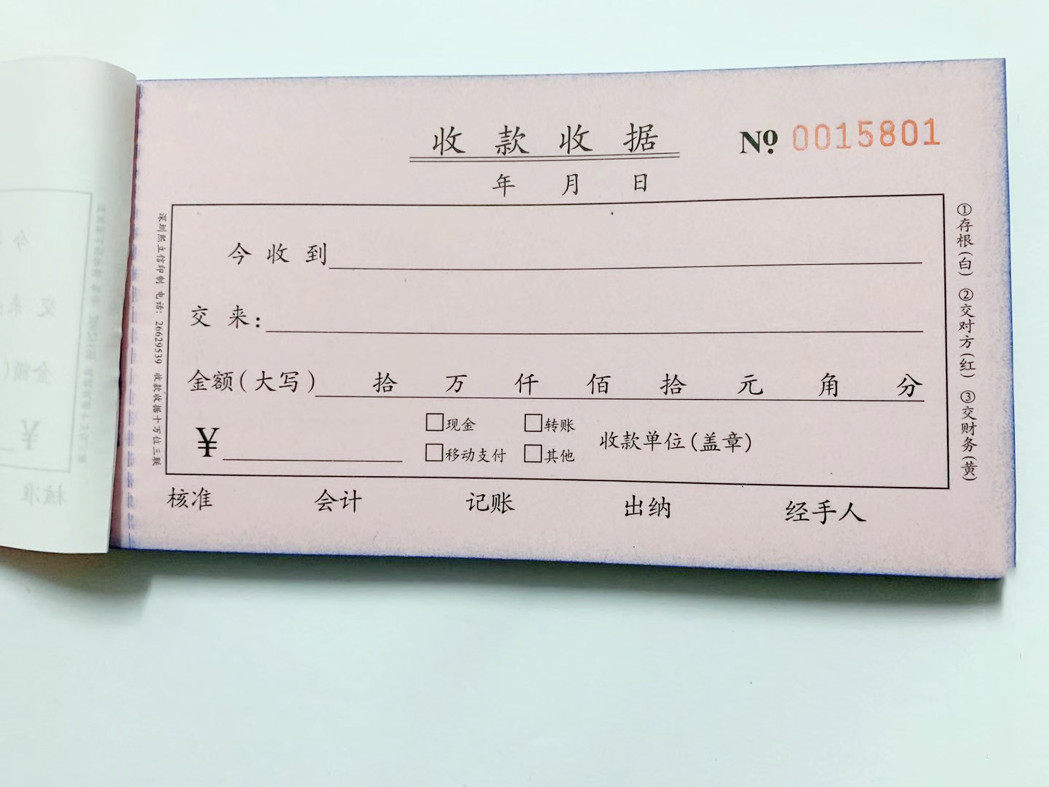 收款收据
Nº 0015801
年 月 日
今收到
交来:
金额(大写) 拾 万 仟 佰 拾 元 角 分
¥ □现金 □转账 收款单位(盖章)
□移动支付 □其他
核准 会计 记账 出纳 经手人
①存根(白) ②交对方(红) ③交财务(黄)
深圳熙立信印制 电话: 26629539 收款收据十万位三联
今
交来
金额(
¥
核准